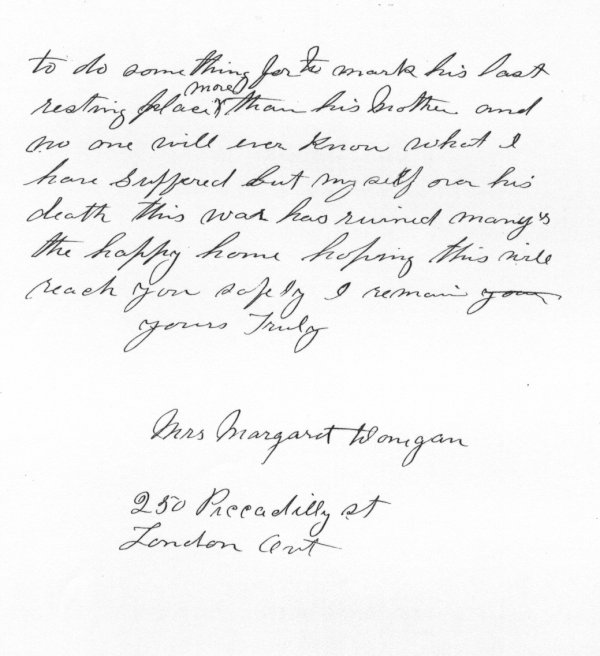 to do something for to mark his last
resting place more than his Mother and
no one will ever know what I
have suffered but my self over his
death this war has ruined many's
the happy home hoping this will
reach you safely I remain your
yours Truly
Mrs Margaret Donegan
250 Piccadilly st
London Ont